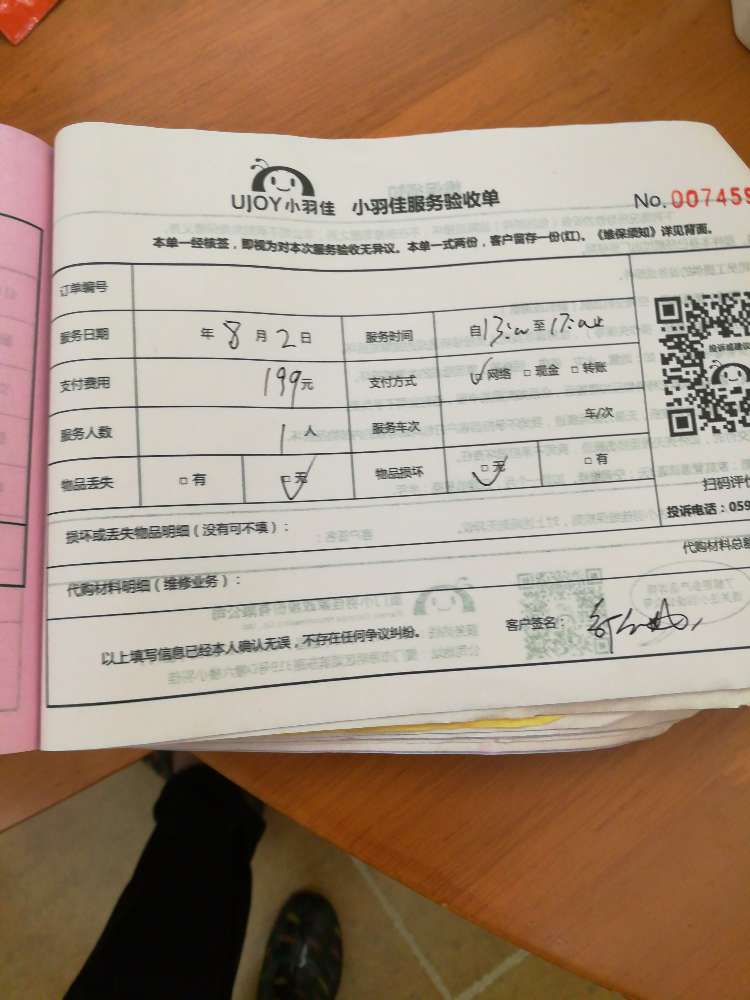 UJOY小羽佳 小羽佳服务验收单 No.007459
本单一经核签，即视为对本次服务验收无异议。本单一式两份，客户留存一份(红)。《维保须知》详见背面。
订单编号
服务日期 年 8 月 2 日 服务时间 自13:00至17:00
支付费用 199元 支付方式 ☑网络 □现金 □转账
服务人数 1人 服务车次 车/次
物品丢失 □有 ☑无 物品损坏 ☑无 □有
投诉或建议
扫码评价
投诉电话：059
损坏或丢失物品明细（没有可不填）：
代购材料明细（维修业务）： 代购材料总额
以上填写信息已经本人确认无误，不存在任何争议纠纷。 客户签名：